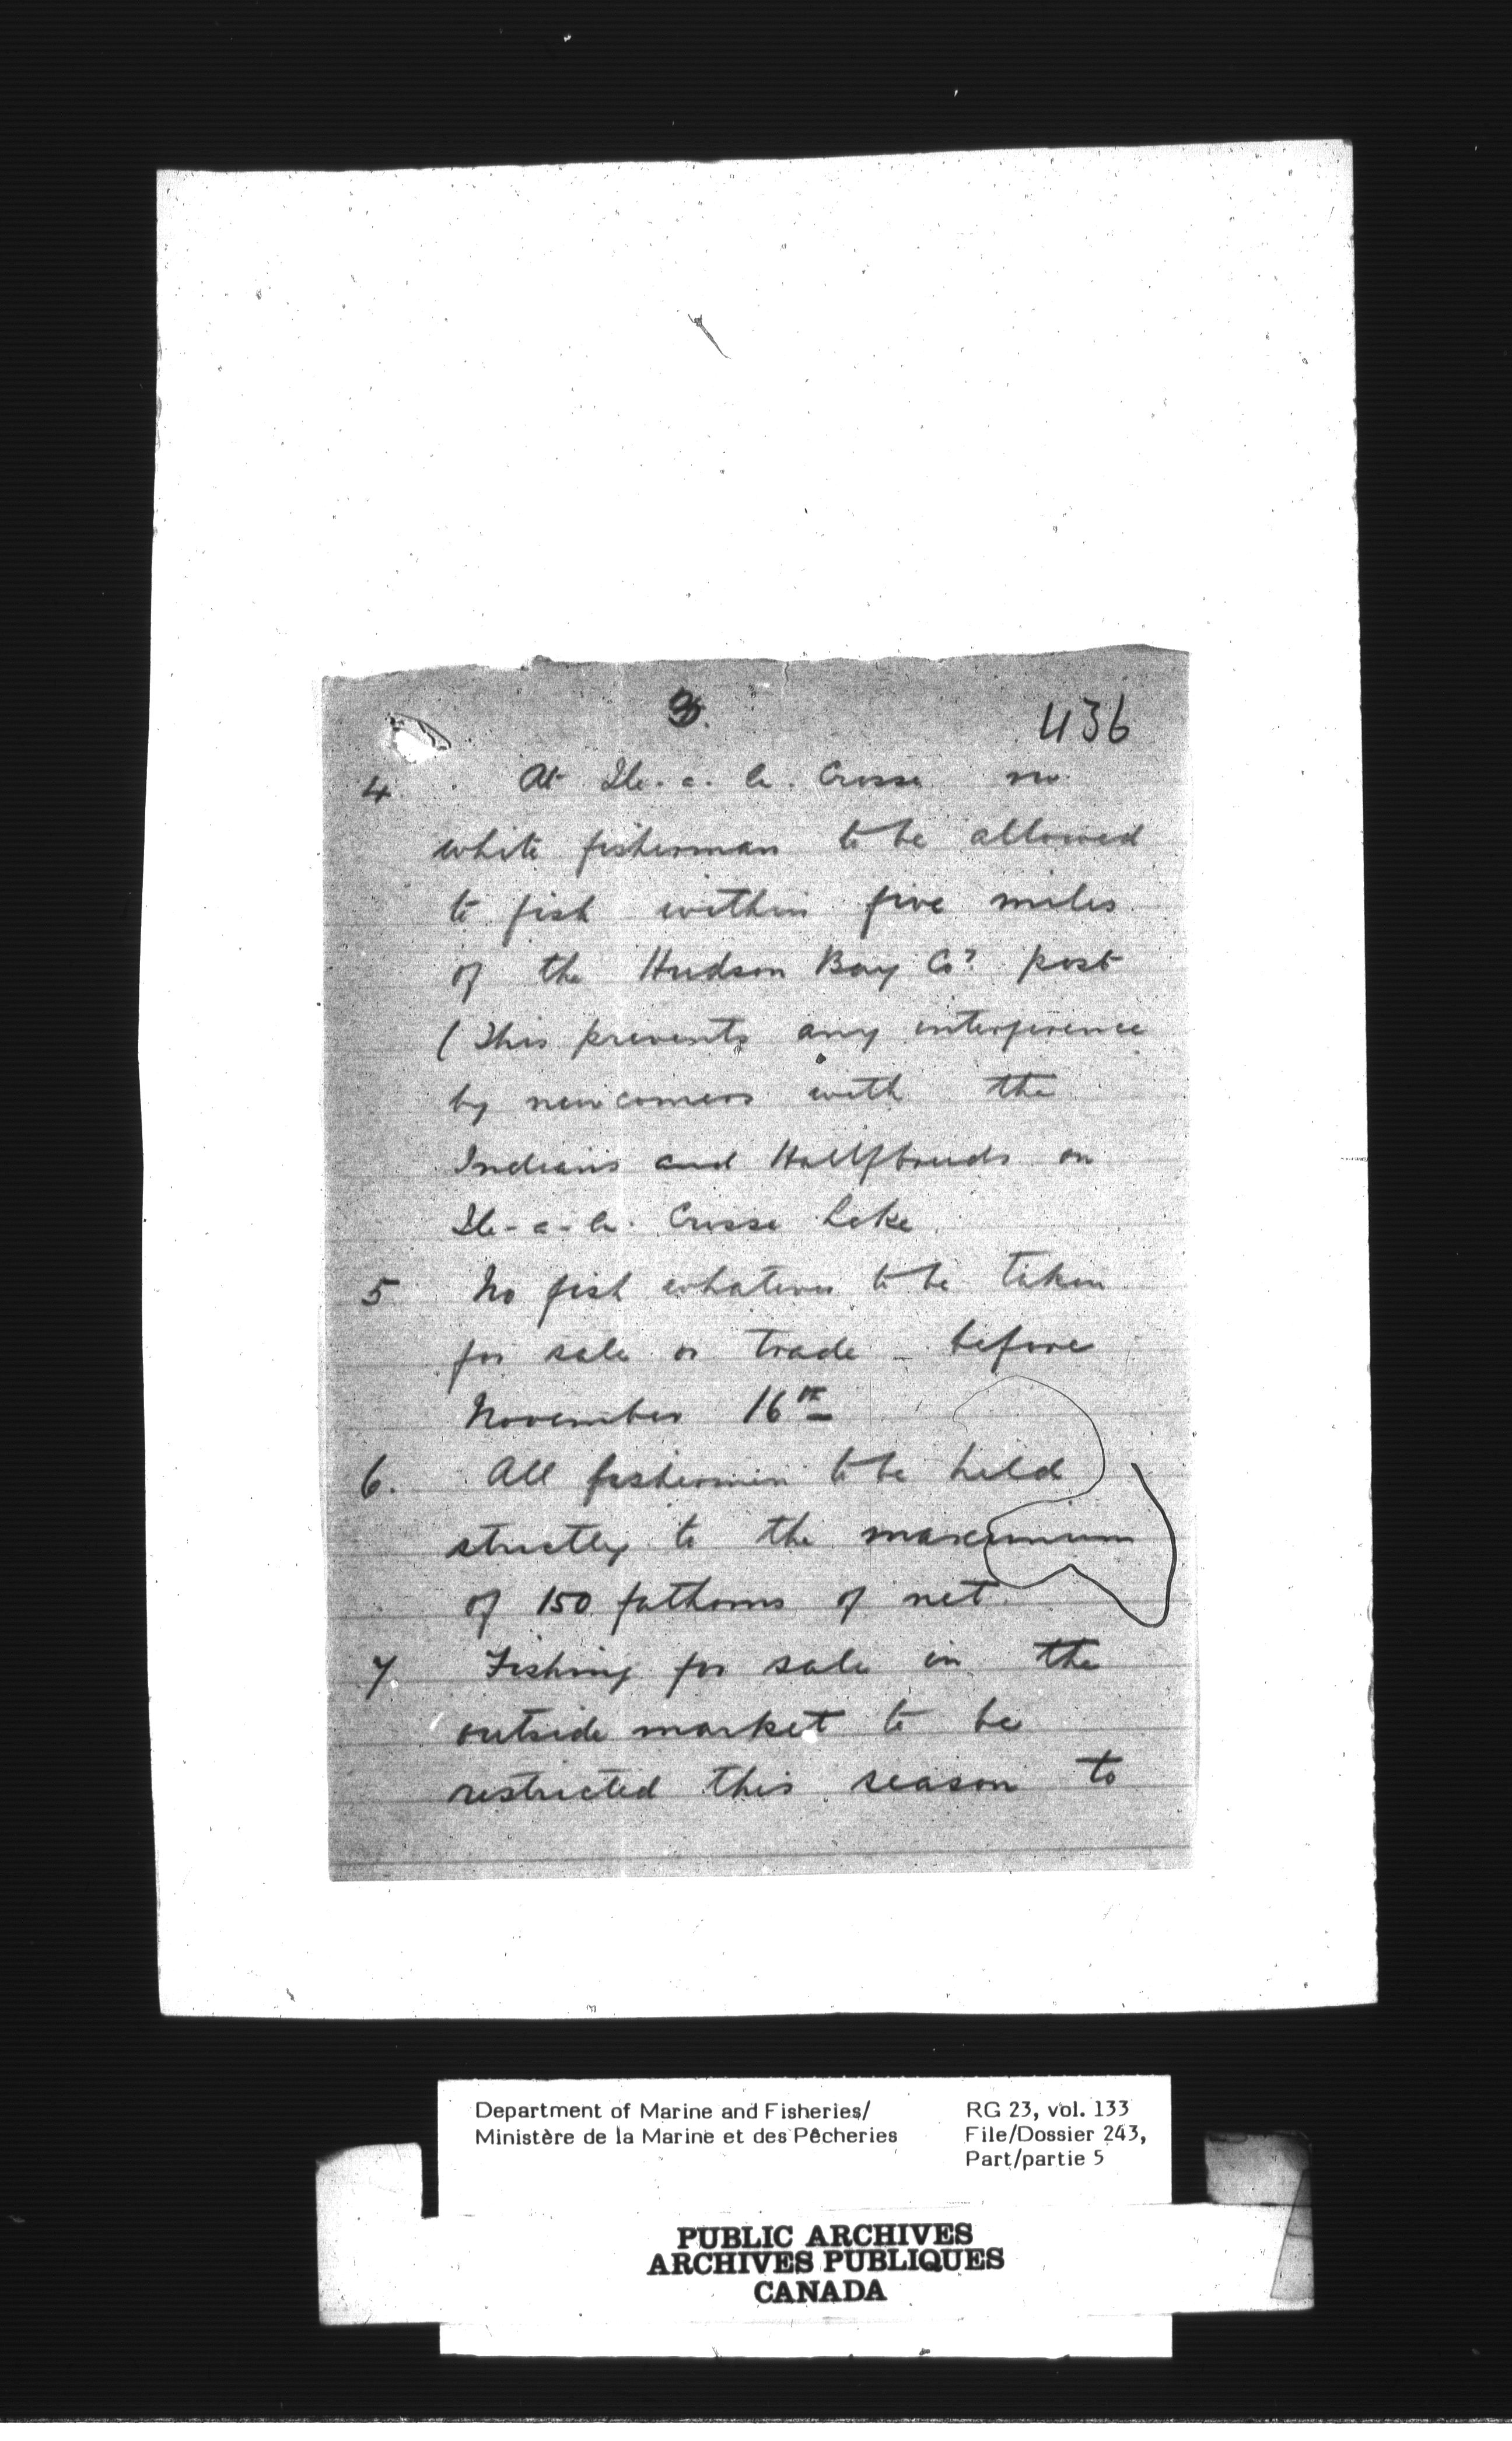 3.
436
4. At Ile-a-la-Crosse no
white fisherman to be allowed
to fish within five miles
of the Hudson Bay Co's post
(This prevents any interference
by newcomers with the
Indians and Halfbreeds on
Ile-a-la-Crosse Lake.
5 No fish whatever to be taken
for sale or trade - before
November 16th
6. All fishermen to be held
strictly to the maximum
of 150 fathoms of net.
7 Fishing for sale in the
outside market to be
restricted this season to
Department of Marine and Fisheries/
Ministère de la Marine et des Pêcheries
RG 23, vol. 133
File/Dossier 243,
Part/partie 5
PUBLIC ARCHIVES
ARCHIVES PUBLIQUES
CANADA